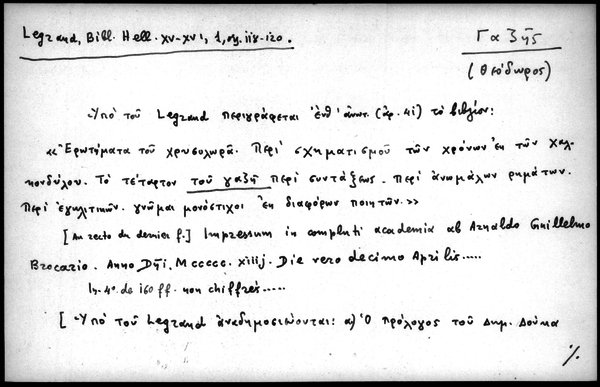 Legrand, Bibl. Hell. XV-XVI, 1, σς. 118-120.
Γαζῆς
(Θεόδωρος)
Ὑπὸ τοῦ Legrand περιγράφεται ἐνθ' ἀνωτ. (ἀρ. 41) τὸ βιβλίον:
«Ἐρωτήματα τοῦ χρυσολωρᾶ. Περὶ σχηματισμοῦ τῶν χρόνων ἐκ τῶν χαλ-
κονδύλου. Τὸ τέταρτον τοῦ γαζῆ περὶ συντάξεως. Περὶ ἀνωμάλων ρημάτων.
Περὶ ἐγκλιτικῶν. γνῶμαι μονόστιχοι ἐκ διαφόρων ποιητῶν.»
[Au recto du dernier f.] Impressum in compluti academia ab Arnaldo Guillelmo
Brocario. Anno Dñi. M ccccc. xiiij. Die vero decimo Aprilis.....
In-4º. de 160 ff. non chiffrés.....
[Ὑπὸ τοῦ Legrand ἀναδημοσιεύονται: α) Ὁ πρόλογος τοῦ Δημ. Δούκα
·/.